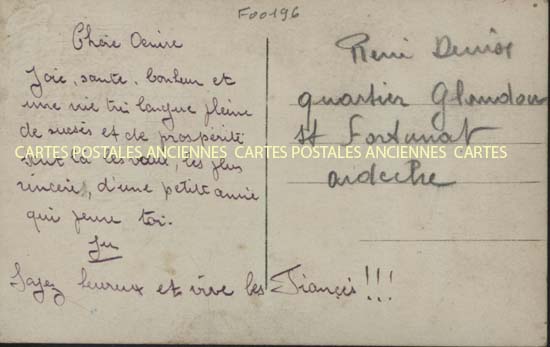 F00196
Chère Denise
Joie, santé, bonheur et
une vie très longue pleine
de succès et de prospérité
CARTES POSTALES ANCIENNES CARTES POSTALES ANCIENNES CARTES
sont là les vœux, les plus
sincères, d'une petite amie
qui pense toi.
Soyez heureux et vive les Fiancés!!!
René Denise
quartier
St Fortunat
ardeche